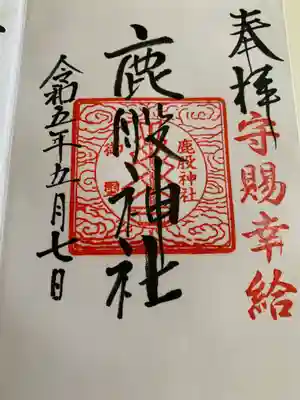 奉拝
守賜幸給
鹿股神社
鹿股神社
令和五年五月七日